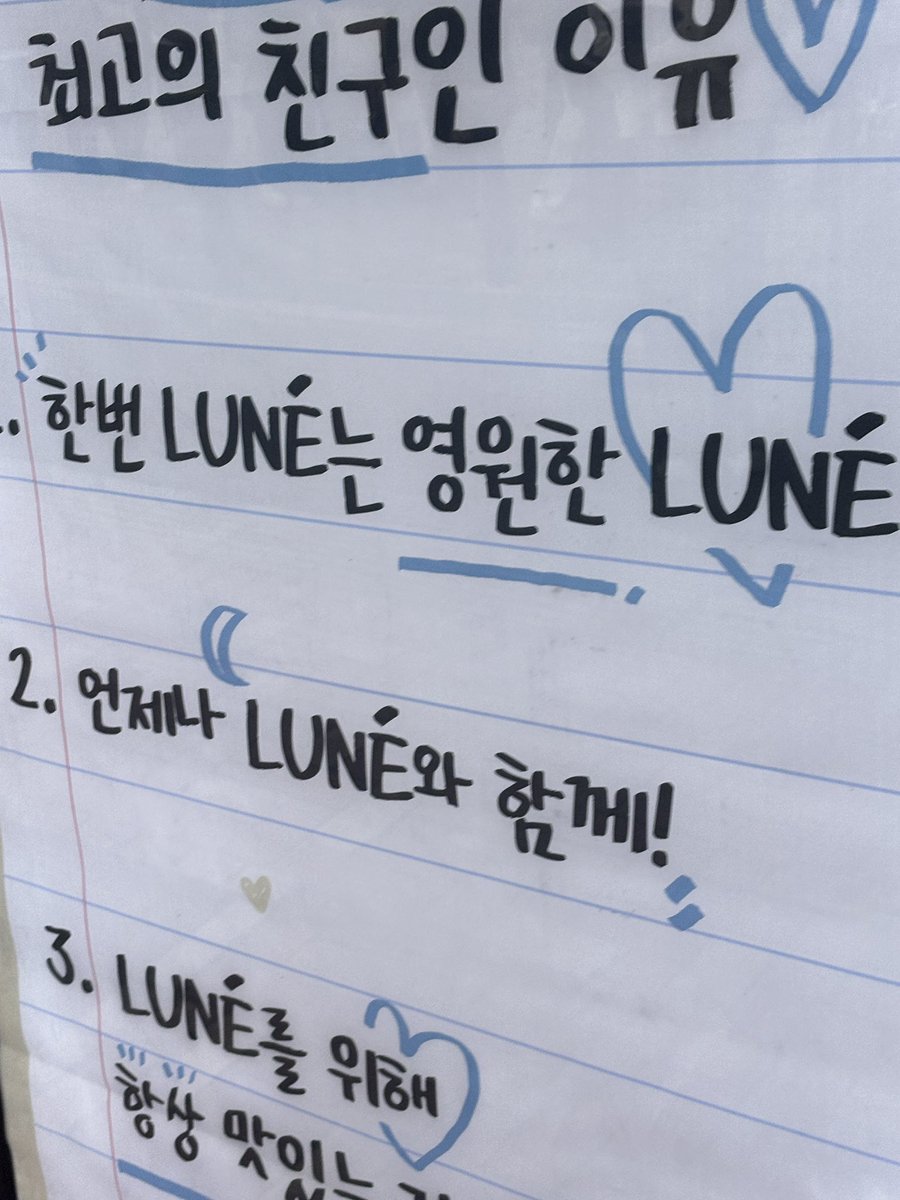 최고의 친구인 이유
한번 LUNÉ는 영원한 LUNÉ
2. 언제나 LUNÉ와 함께!
3. LUNÉ를 위해
항상 맛있는